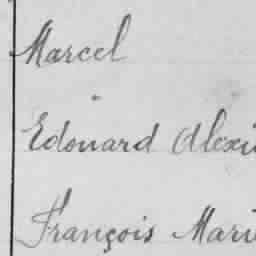 Marcel
Edouard Alexi
François Mari